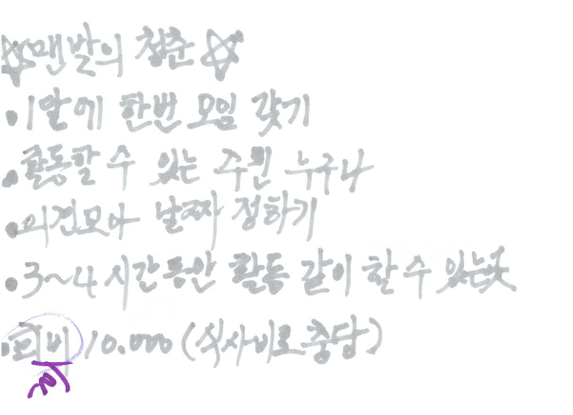 ☆맨발의 청춘☆
•1달에 한번 모임 갖기
•활동할 수 있는 주민 누구나
•의견모아 날짜 정하기
•3~4시간동안 활동 같이 할 수 있는곳
•회비 10.000 (식사비로 충당)